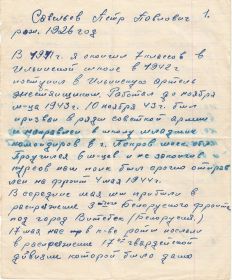 Савельев Петр Павлович 1.
рож. 1926 год
В 1941 г. я окончил 7 классов в
Ильинской школе в 1942 г
поступил в Ильинскую артель
Работал до ноября
м-ца 1943 г. 10 ноября 43 г. был
призван в ряды советской армии
и направлен в школу младших
командиров в г. Покров
Проучился 6 м-цев и не закончив
курсов наш полк был срочно отправ
лен на фронт 4 мая 1944 г.
В середине мая мы прибыли в
распряжение Белорусского фронта
под город Витебск (Белорусия.)
17 мая нас в к-ве роты послали
в распряжение 17ой гвардейской
дивизии которой было дано